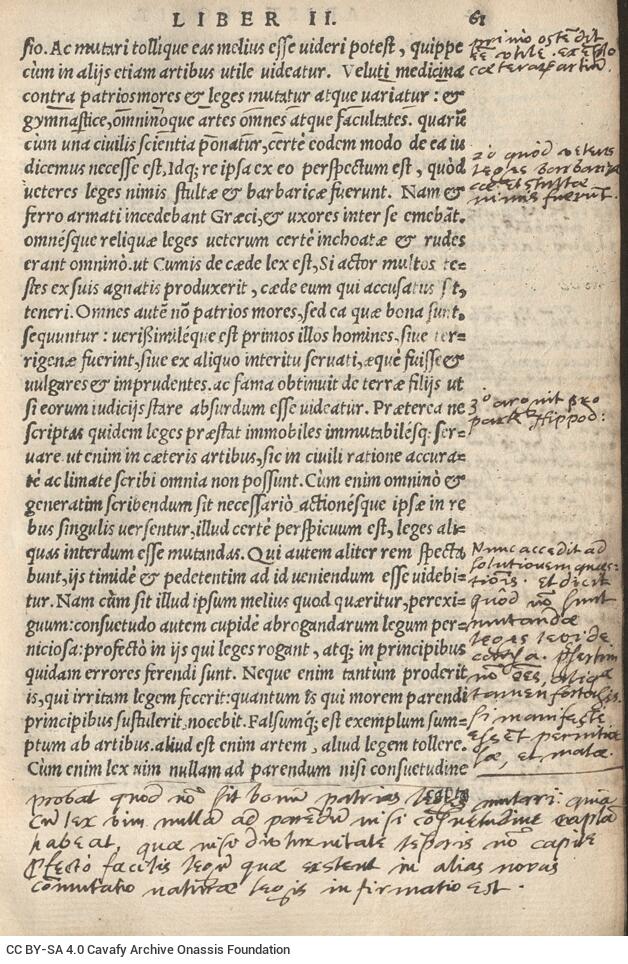 LIBER II. 61
sio. Ac mutari tollique eas melius esse uideri potest, quippe
cùm in alijs etiam artibus utile uideatur. Veluti medicina
contra patrios mores & leges mutatur atque uariatur: &
gymnastice, omninoque artes omnes atque facultates. quarũ
cùm una ciuilis scientia ponatur, certè eodem modo de ea iu
dicemus necesse est. Idq; re ipsa ex eo perspectum est, quòd
ueteres leges nimis stultæ & barbaricæ fuerunt. Nam &
ferro armati incedebant Græci, & uxores inter se emebãt.
omnésque reliquæ leges ueterum certè inchoatæ & rudes
erant omninò. ut Cumis de cæde lex est, Si actor multos te=
stes ex suis agnatis produxerit, cæde eum qui accusatus sit,
teneri. Omnes autẽ nõ patrios mores, sed ea quæ bona sunt,
sequuntur: uerisimiléque est primos illos homines, siue ter=
rigenæ fuerint, siue ex aliquo interitu seruati, æquè fuisse &
uulgares & imprudentes. ac fama obtinuit de terræ filijs ut
si eorum iudicijs stare absurdum esse uideatur. Præterea ne
scriptas quidem leges præstat immobiles immutabilésq; ser=
uare. ut enim in cæteris artibus, sic in ciuili ratione accura=
tè ac limate scribi omnia non possunt. Cùm enim omninò &
generatim scribendum sit necessariò, actionésque ipsæ in re
bus singulis uersentur, illud certè perspicuum est, leges ali=
quas interdum esse mutandas. Qui autem aliter rem specta
bunt, ijs timidè & pedetentim ad id ueniendum esse uidebi=
tur. Nam cùm sit illud ipsum melius quod quæritur, perexi=
guum: consuetudo autem cupidè abrogandarum legum per=
niciosa: profectò in ijs qui leges rogant, atq; in principibus
quidam errores ferendi sunt. Neque enim tantùm proderit
is, qui irritam legem fecerit: quantum is qui morem parendi
principibus sustulerit, nocebit. Falsumq; est exemplum sum=
ptum ab artibus. aliud est enim artem, aliud legem tollere.
Cùm enim lex uim nullam ad parendum nisi consuetudine
primo ostẽdit
utile
cæterarũ artiũ.
2o quòd veteres
leges barbari
cæ et stultæ
nimis fuerunt.
3o
Hippod:
Nunc accedit ad
solutionem quæs=
tionis. Et dicit
quòd nõ sunt
mutandæ
leges
tamen
si manifestè
essẽt pernicio
sæ, et malæ.
probat quod nõ sit bonum patrias leges mutari: quia
cũ lex vim nullã ad parendũ nisi cõsuetudine
habeat, quæ nisi diuturnitate tẽporis nõ
facilis legũ quæ extent in alias nouas
cõmutatio naturæ legis infirmatio est.
CC BY-SA 4.0 Cavafy Archive Onassis Foundation